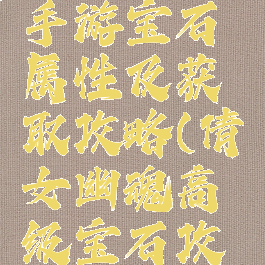 手游宝石
属性及获
取攻略(倩
女幽魂高
级宝石攻